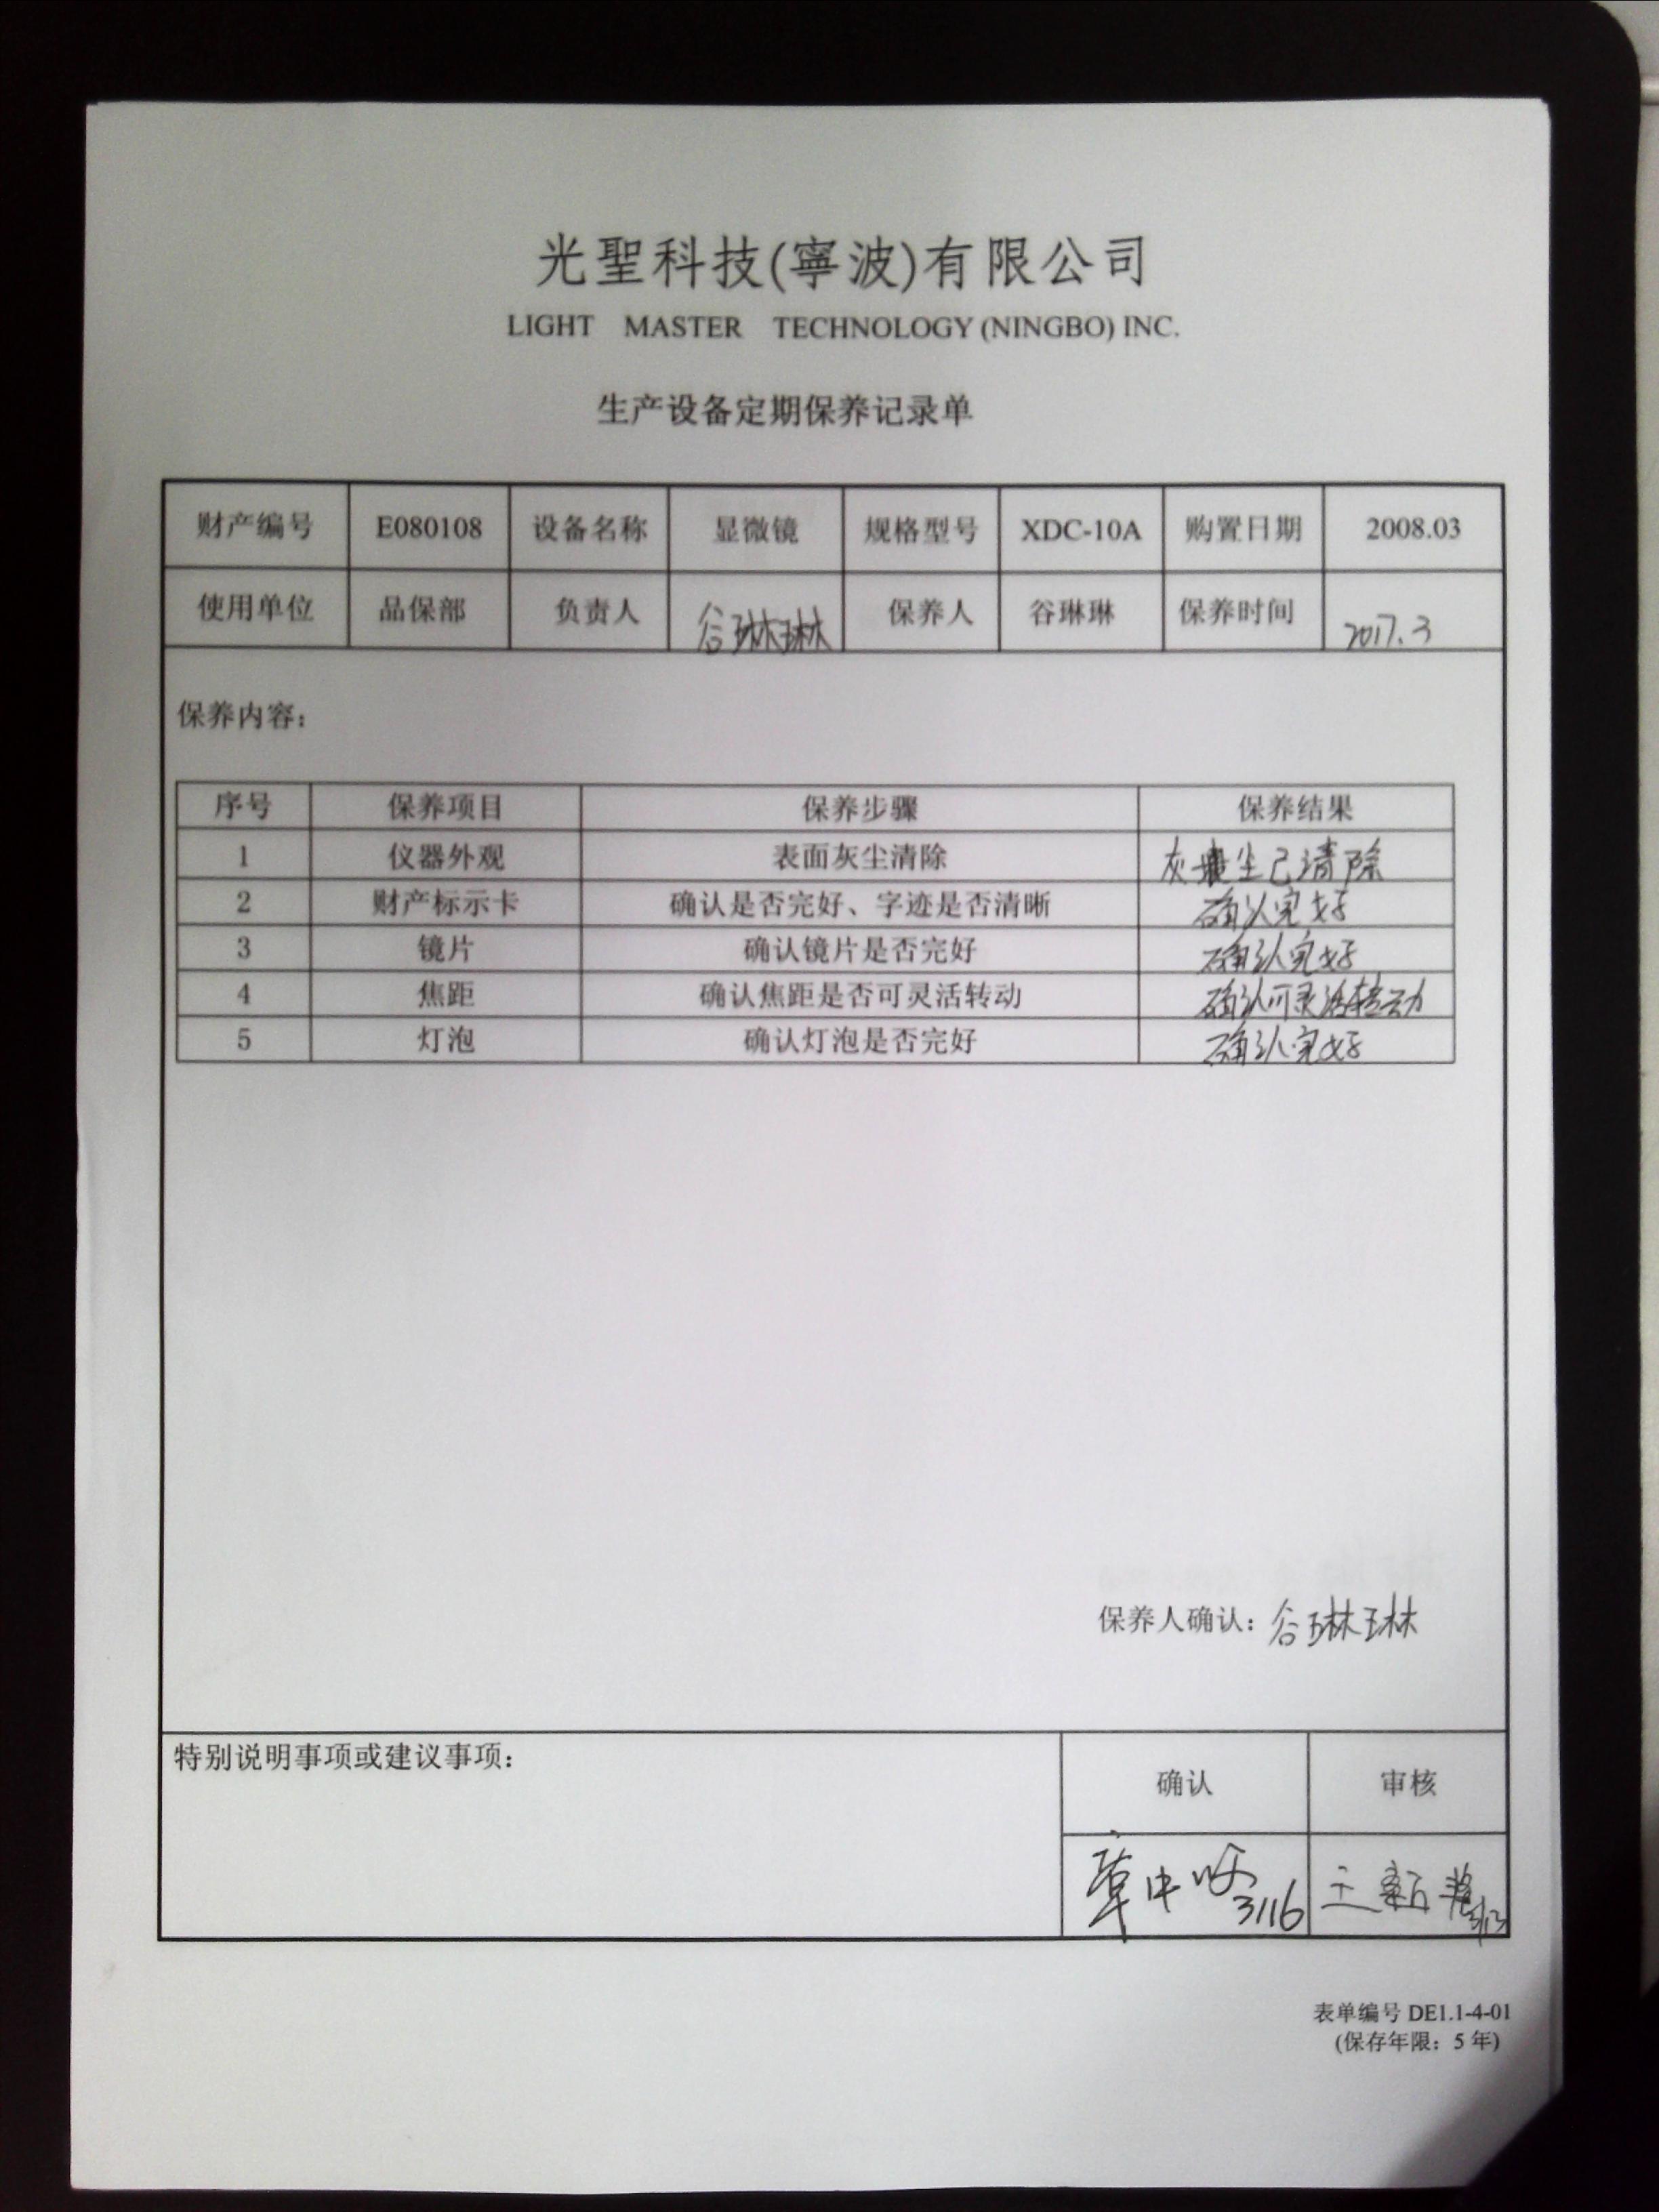 光聖科技(寧波)有限公司
LIGHT MASTER TECHNOLOGY (NINGBO) INC.
生产设备定期保养记录单
财产编号 E080108 设备名称 显微镜 规格型号 XDC-10A 购置日期 2008.03
使用单位 品保部 负责人 谷琳琳 保养人 谷琳琳 保养时间 2017.3
保养内容：
序号 保养项目 保养步骤 保养结果
1 仪器外观 表面灰尘清除 灰尘已清除
2 财产标示卡 确认是否完好、字迹是否清晰 确认完好
3 镜片 确认镜片是否完好 确认完好
4 焦距 确认焦距是否可灵活转动 确认可灵活转动
5 灯泡 确认灯泡是否完好 确认完好
保养人确认：谷琳琳
特别说明事项或建议事项：
确认 审核
3/16
表单编号 DE1.1-4-01
(保存年限：5 年)